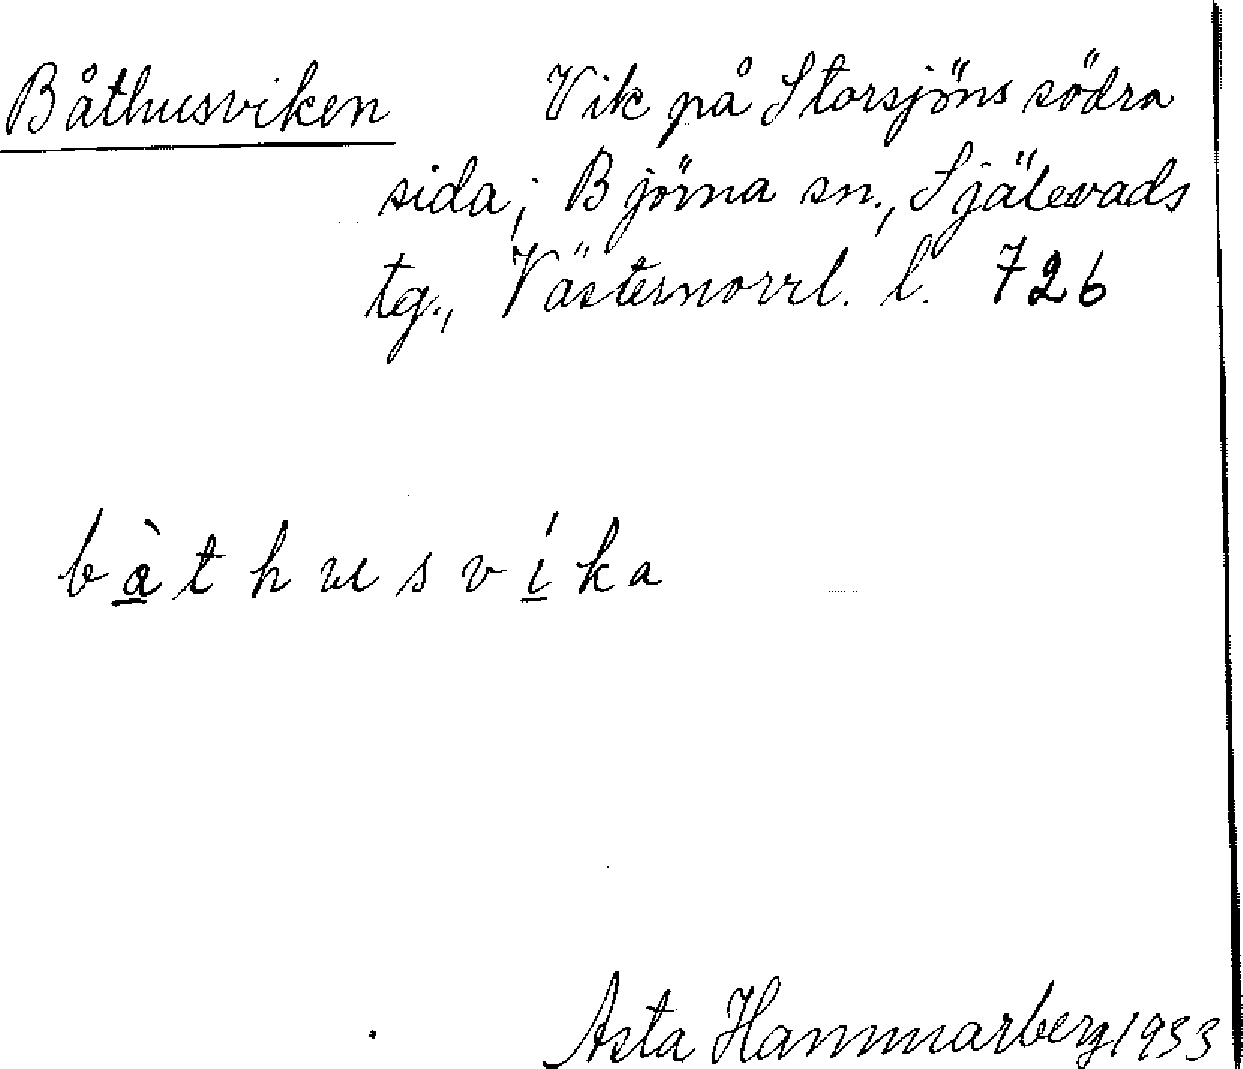 Båthusviken Vik på Storsjöns södra
sida; Björna sn., Själevads
tg., Västernorrl. l. 726
b à t h u s v í k a
Asta Hammarberg 1933